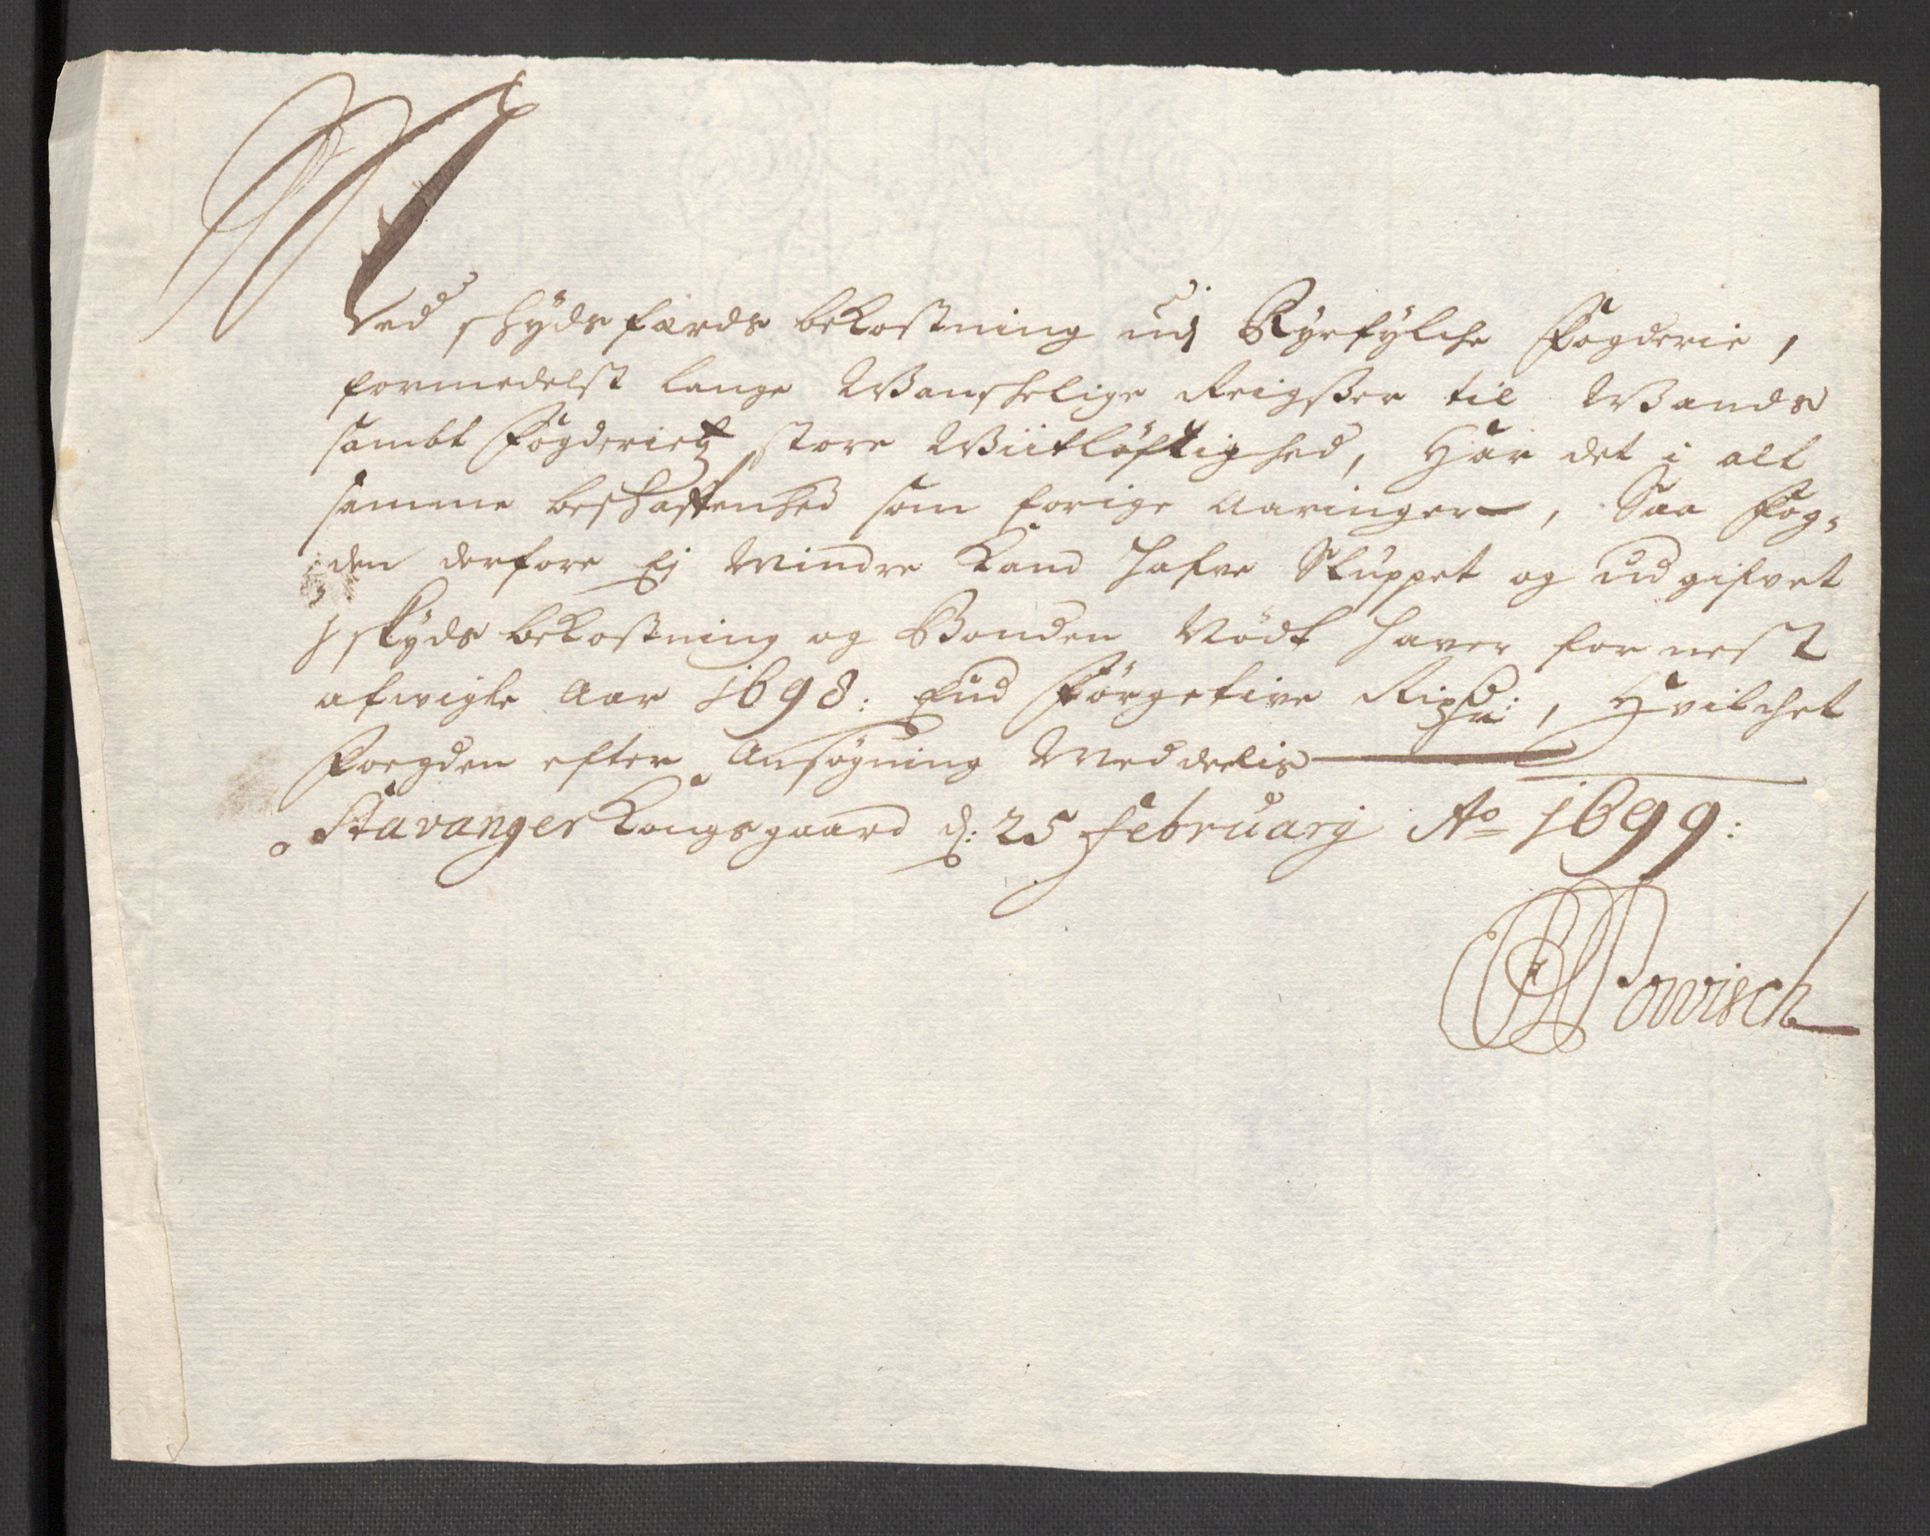 Ved schydsfærds bekostning udj Ryefylche Fogderie,
formedelst lange Wanschelige Reigsser til Wands
sambt Fogderietz store Wiitløftighed, Har det i alt
samme beschaffenhed som forige Aaringer, Saa Fog-
den derfore Ej Mindre Kand hafve Sluppet og udgifvet
j skyds bekostning og Bonden Nödt haver for nest
afwigte Aar 1698: End Förgetive Rixdr:, Hvilchet
Foegden efter Ansøgning Meddeelis
Stavanger Kongsgaard d: 25 Februarij Ao 1699:
Powisch